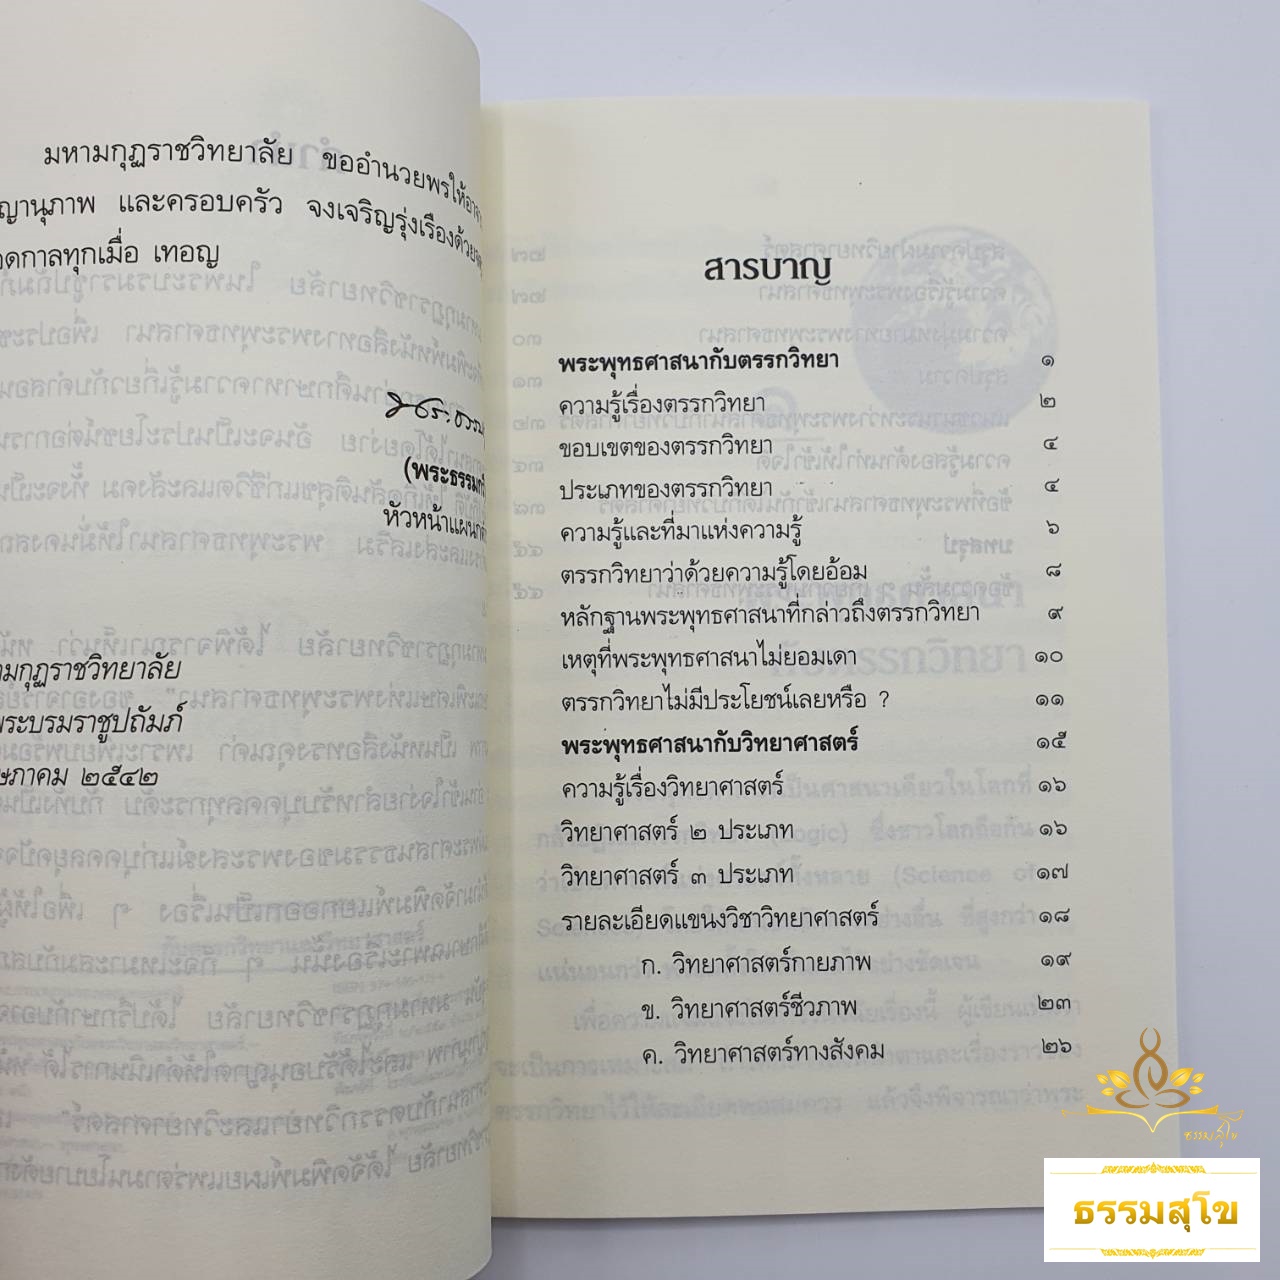 มหามกุฏราชวิทยาลัย ขออำนวยพรให้อาจา
ญานุภาพ และครอบครัว จงเจริญรุ่งเรืองด้วย
อดกาลทุกเมื่อ เทอญ
(พระธรรม
หัวหน้าแผนก
ามกุฏราชวิทยาลัย
พระบรมราชูปถัมภ์
ษภาคม ๒๕๔๒
สารบาญ
พระพุทธศาสนากับตรรกวิทยา ๑
ความรู้เรื่องตรรกวิทยา ๒
ขอบเขตของตรรกวิทยา ๔
ประเภทของตรรกวิทยา ๔
ความรู้และที่มาแห่งความรู้ ๖
ตรรกวิทยาว่าด้วยความรู้โดยอ้อม ๘
หลักฐานพระพุทธศาสนาที่กล่าวถึงตรรกวิทยา ๙
เหตุที่พระพุทธศาสนาไม่ยอมเดา ๑๐
ตรรกวิทยาไม่มีประโยชน์เลยหรือ ? ๑๑
พระพุทธศาสนากับวิทยาศาสตร์ ๑๕
ความรู้เรื่องวิทยาศาสตร์ ๑๖
วิทยาศาสตร์ ๒ ประเภท ๑๖
วิทยาศาสตร์ ๓ ประเภท ๑๗
รายละเอียดแขนงวิชาวิทยาศาสตร์ ๑๘
ก. วิทยาศาสตร์กายภาพ ๑๙
ข. วิทยาศาสตร์ชีวภาพ ๒๓
ค. วิทยาศาสตร์ทางสังคม ๒๖
ธรรมสุโข
ธรรมสุโข